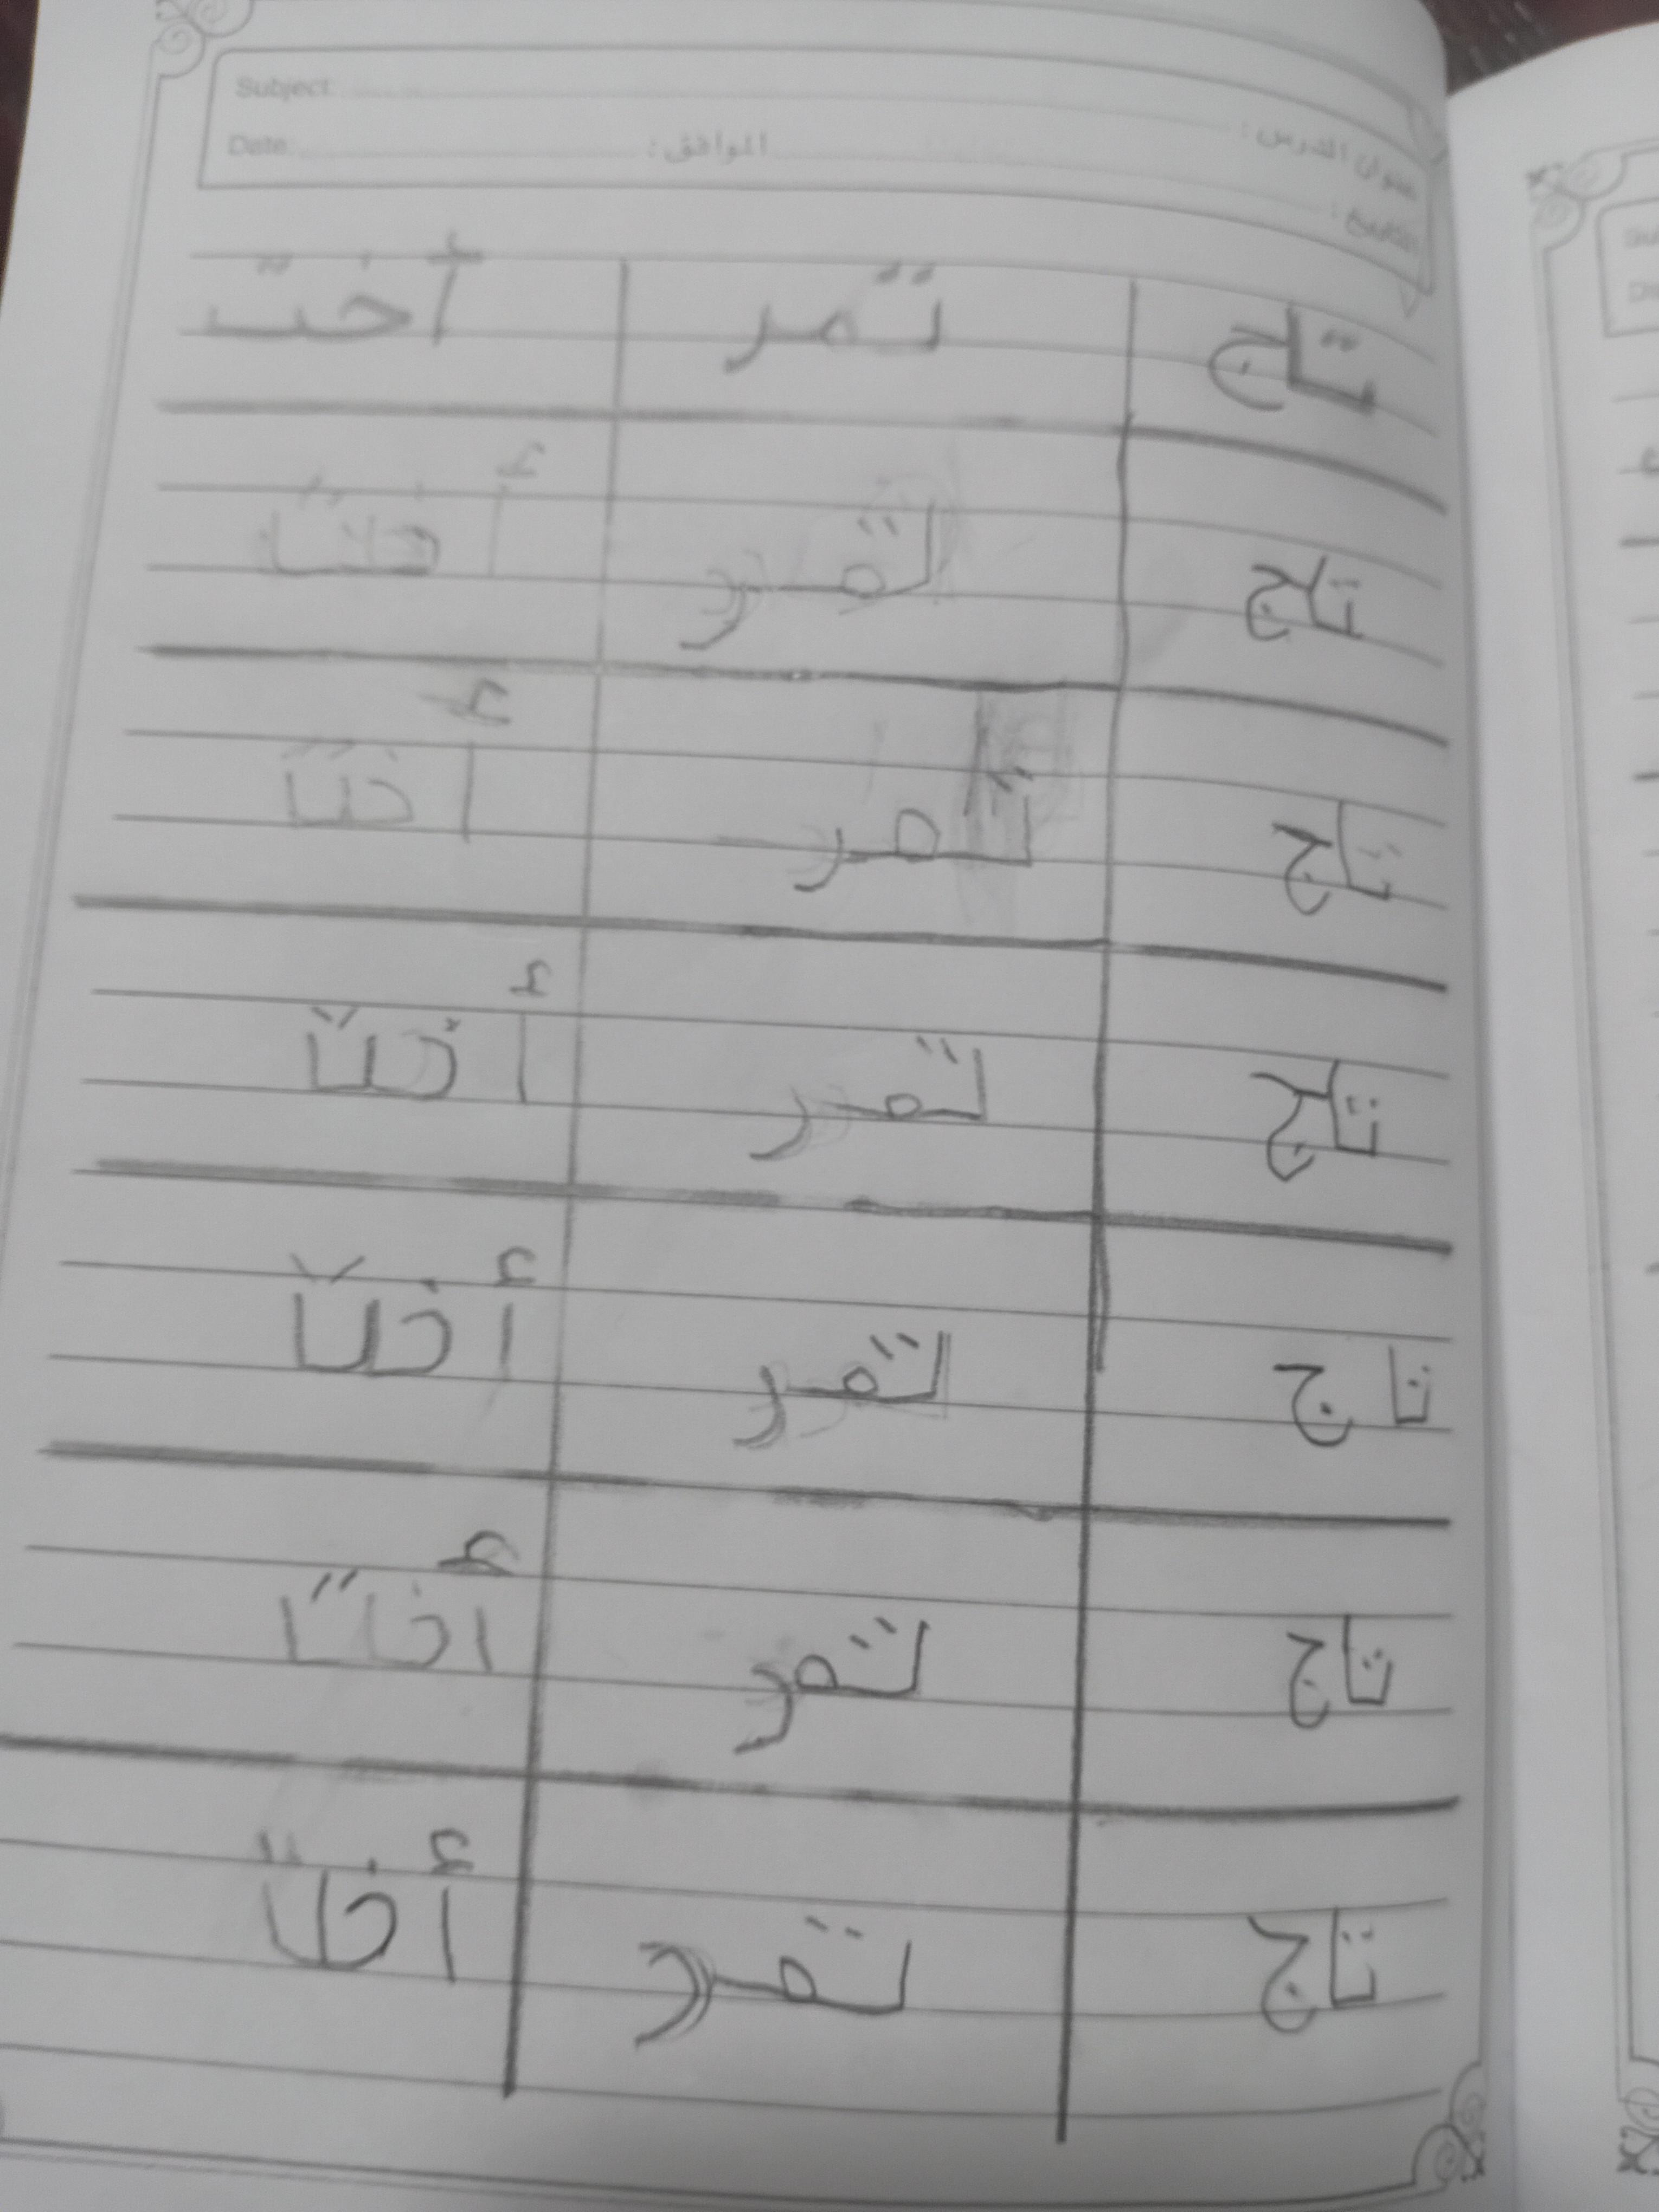 Subject: عنوان الدرس :
Date: الموافق : التاريخ :
تاج تمر أخت
تاج تمر أخت
تاج تمر أخت
تاج تمر أخت
تاج تمر أخت
تاج تمر أخت
تاج تمر أخت